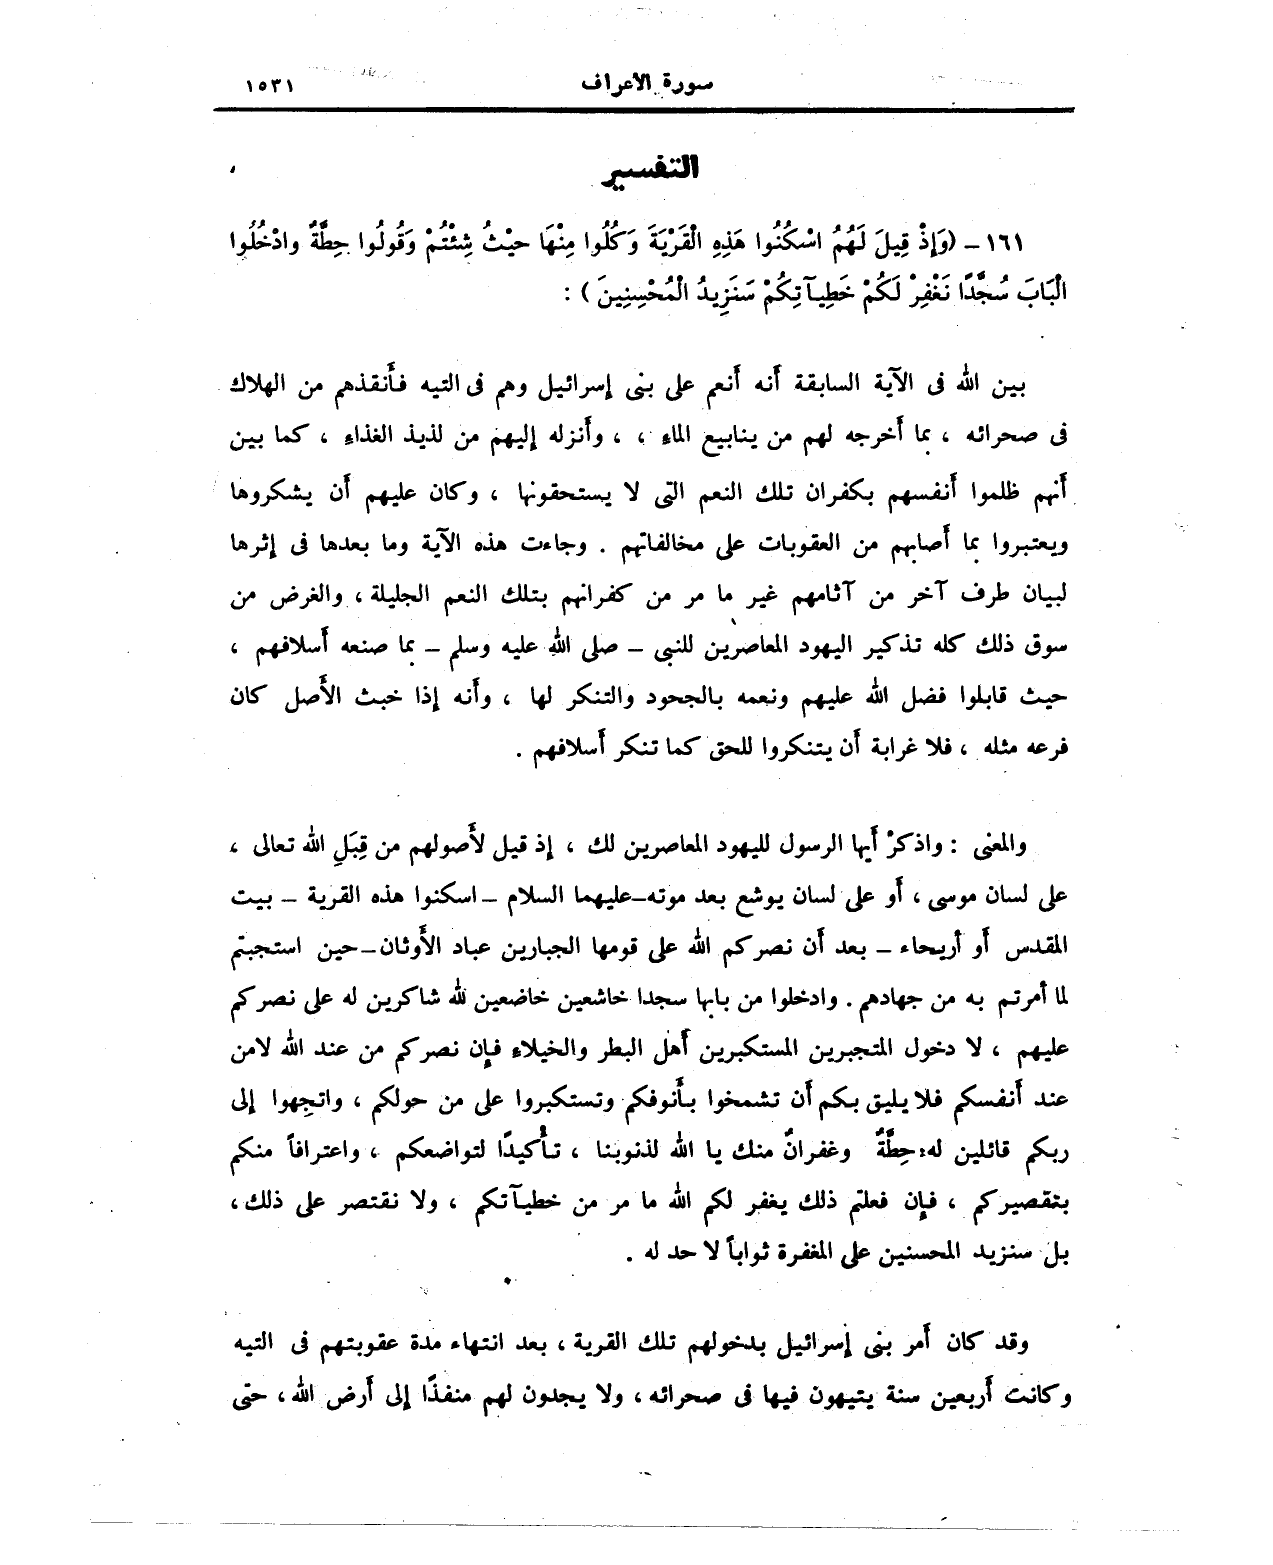 سورة الأعراف ١٥٣١
التفسير
١٦١ - (وَإِذْ قِيلَ لَهُمُ اسْكُنُوا هَذِهِ الْقَرْيَةَ وَكُلُوا مِنْهَا حَيْثُ شِئْتُمْ وَقُولُوا حِطَّةٌ وادْخُلُوا
الْبَابَ سُجَّدًا نَغْفِرْ لَكُمْ خَطِيآتِكُمْ سَنَزِيدُ الْمُحْسِنِينَ) :
بين الله فى الآية السابقة أنه أنعم على بنى إسرائيل وهم فى التيه فأنقذهم من الهلاك
فى صحرائه ، بما أخرجه لهم من ينابيع الماء ، ، وأنزله إليهم من لذيذ الغذاء ، كما بين
أنهم ظلموا أنفسهم بكفران تلك النعم التى لا يستحقونها ، وكان عليهم أن يشكروها
ويعتبروا بما أصابهم من العقوبات على مخالفاتهم . وجاءت هذه الآية وما بعدها فى إثرها
لبيان طرف آخر من آثامهم غير ما مر من كفرانهم بتلك النعم الجليلة ، والغرض من
سوق ذلك كله تذكير اليهود المعاصرين للنبى - صلى الله عليه وسلم - بما صنعه أسلافهم ،
حيث قابلوا فضل الله عليهم ونعمه بالجحود والتنكر لها ، وأنه إذا خبث الأصل كان
فرعه مثله ، فلا غرابة أن يتنكروا للحق كما تنكر أسلافهم .
والمعنى : واذكرْ أيها الرسول لليهود المعاصرين لك ، إذ قيل لأصولهم من قِبَلِ الله تعالى ،
على لسان موسى ، أو على لسان يوشع بعد موته-عليهما السلام - اسكنوا هذه القرية - بيت
المقدس أو أريحاء - بعد أن نصركم الله على قومها الجبارين عباد الأوثان-حين استجبتم
لما أمرتم به من جهادهم . وادخلوا من بابها سجدا خاشعين خاضعين لله شاكرين له على نصركم
عليهم ، لا دخول المتجبرين المستكبرين أهل البطر والخيلاء فإن نصركم من عند الله لامن
عند أنفسكم فلا يليق بكم أن تشمخوا بأنوفكم وتستكبروا على من حولكم ، واتجِهوا إلى
ربكم قائلين له: حِطَّةٌ وغفرانٌ منك يا الله لذنوبنا ، تأكيدًا لتواضعكم ، واعترافاً منكم
بتقصيركم ، فإن فعلتم ذلك يغفر لكم الله ما مر من خطيآتكم ، ولا نقتصر على ذلك ،
بل سنزيد المحسنين على المغفرة ثواباً لا حد له .
وقد كان أمر بنى إسرائيل بدخولهم تلك القرية ، بعد انتهاء مدة عقوبتهم فى التيه
وكانت أربعين سنة يتيهون فيها فى صحرائه ، ولا يجدون لهم منفذًا إلى أرض الله ، حتى